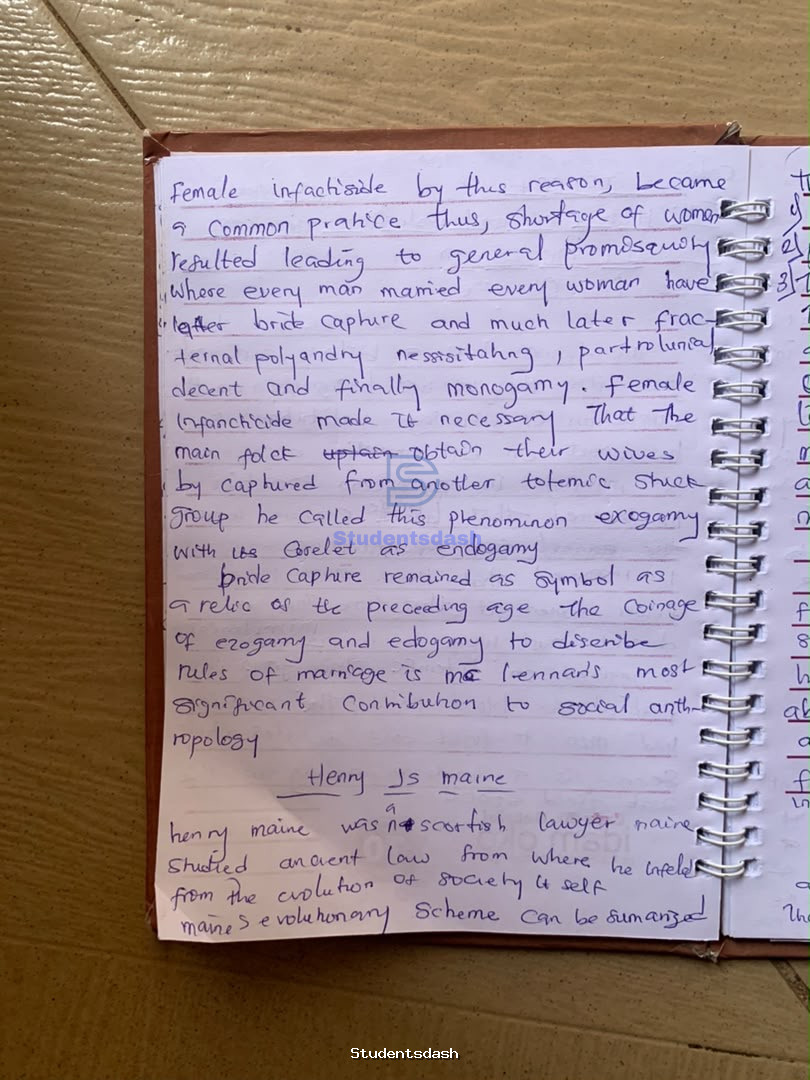 Female infactiside by this reason, became
a common prahice thus, shortage of women
resulted leading to general promosquoty
where every man married every woman have
letter bride capture and much later frac-
ternal polyandry nessisitating, partrolunial
decent and finally monogamy. Female
Infanchicide made it necessary That the
main folck uptain obtain their wives
by captured from another totemic stuck
group he called this phenominon exogamy
with its Corelet as endogamy
bride capture remained as symbol as
a relic as the preceding age the Coinage
of exogamy and edogamy to discribe
rules of marriage is mc lennans most
significant Contribution to social anth-
ropology
Henry Js maine
henry maine was a scottish lawyer maine
studied ancient law from where he infeled
from the evolution of society it self
maine's evolutionary Scheme can be sumarized
tu
1/
2/
3/
Studentsdash
Studentsdash